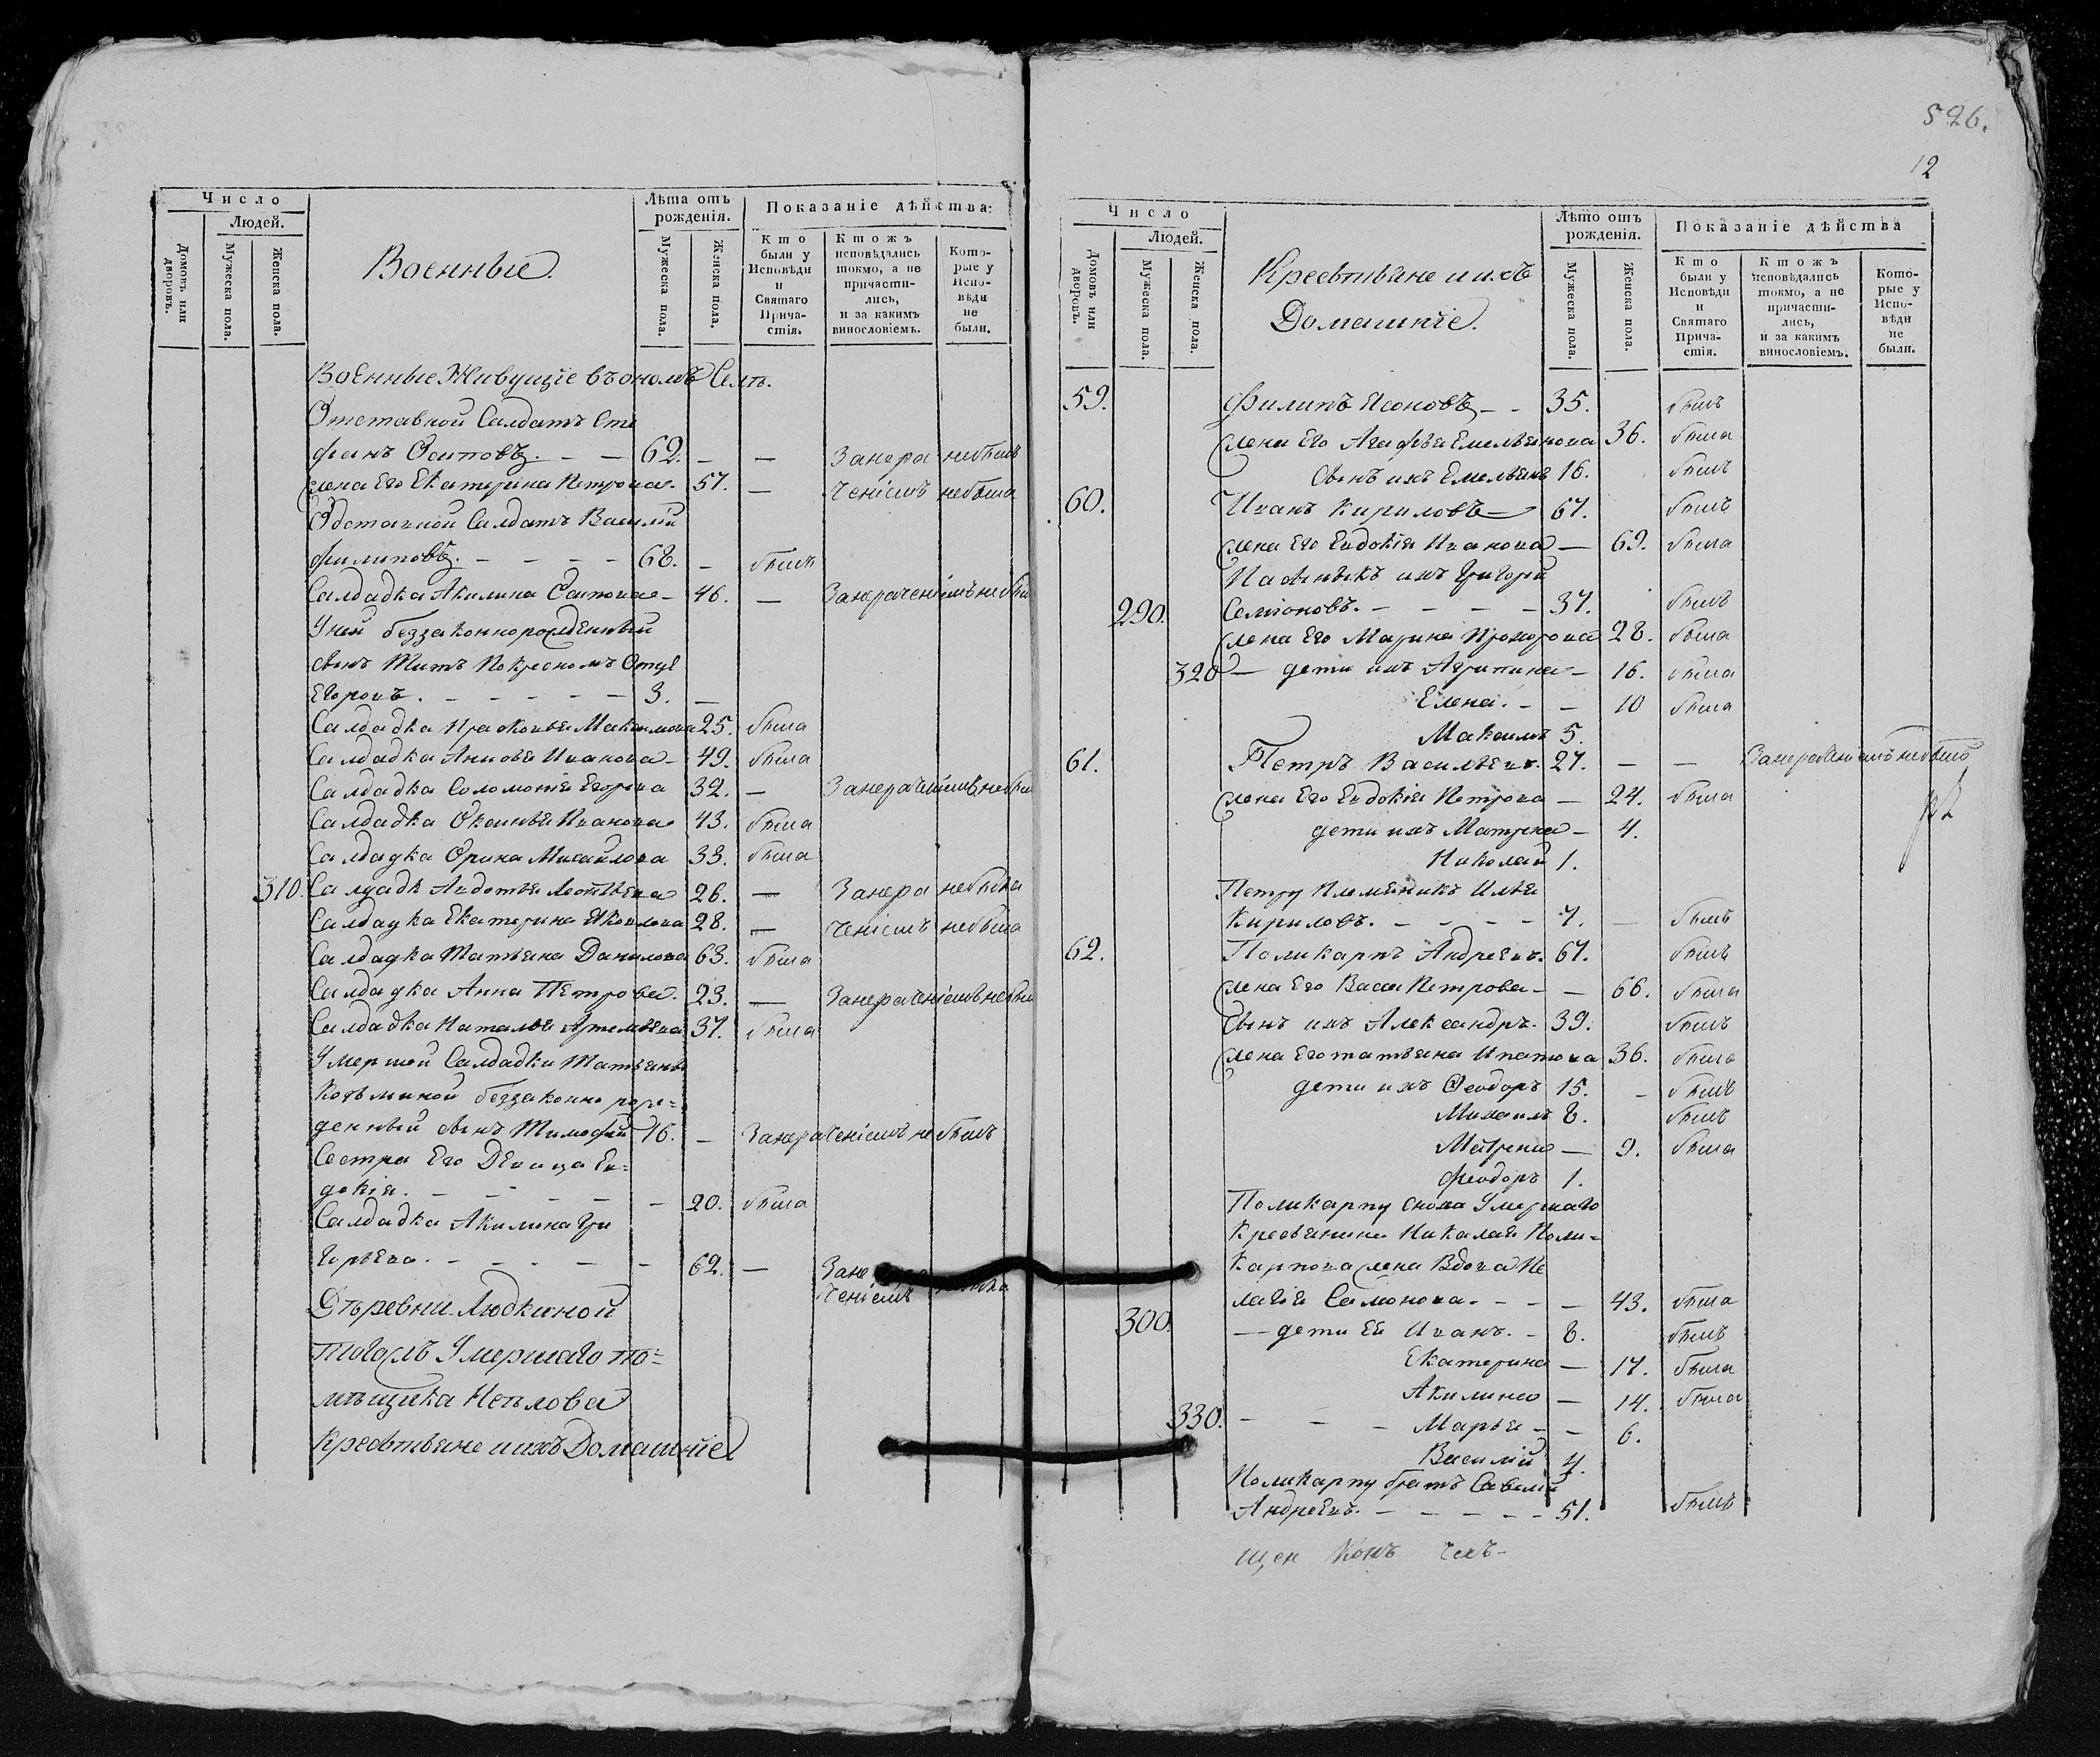 Число
Людей.
Домовъ или дворовъ.
Мужеска пола.
Женска пола.
Военные.
Лѣта отъ рожденія.
Мужеска пола.
Женска пола.
Показаніе дѣйства:
Кто были у Исповѣди и Святаго Прича-стія.
Ктожъ исповѣдались токмо, а не причасти-лись, и за какимъ винословіемъ.
Кото-рые у Испо-вѣди не были.
Военные Живущіе въ ономъ Селѣ.
Отставной Салдатъ Сте
фанъ Осиповъ. – – 62. – – Занера небылъ
жена Его Екатерина Петрова – 57. – ченіемъ небыла
Отставной Салдатъ Василій
Филиповъ. – – – – 68. – былъ
Салдадка Акилина Осипова – 46. – Занераченіемъ небы
Уней беззаконнорожденный
сынъ Титъ Покресномъ Отцѣ
Егоровъ. – – – – – 3. –
Салдадка Прасковья Максимова 25. была
Салдадка Анисья Иванова – 49. была
Салдадка Соломонія Егорова 32. – Занераченіемъ небы
Салдадка Оксинья Иванова 43. была
Салдадка Орина Михайлова 33. была
310. Салдадк Авдотья Леонтьева 26. – Занера небыла
Салдадка Екатерина Яковлева 28. – ченіемъ небыла
Салдадка Татьяна Данилова 63. была
Салдадка Анна Петрова. 23. – Занераченіемъ небы
Салдадка Наталья Артемьева 37. была
Умершей Салдадки Татьяны
Козьминой беззаконно рож-
денный сынъ Тимофей 16. – Занераченіемъ не былъ
Сестра Его Девица Ев-
докія. – – – – – 20. была
Салдадка Акилина Гри
горьева. – – – – – 62. – Зане
ченіемъ
Дѣревни Людкиной
тогожъ Умершаго по-
мѣщика Неѣлова
Крестьяне иихъ Домашніе
526.
12
Число
Людей.
Домовъ или дворовъ.
Мужеска пола.
Женска пола.
Крестьяне иихъ
Домашніе.
Лѣто отъ рожденія.
Мужеска пола.
Женска пола.
Показаніе дѣйства
Кто были у Исповѣди и Святаго Прича-стія.
Ктожъ исповѣдались токмо, а не причасти-лись, и за какимъ винословіемъ.
Кото-рые у Испо-вѣди не были.
59. Филипъ Ясоновъ – – 35. былъ
жена Его Агафья Емельянова 36. была
Сынъ ихъ Емельянъ 16. былъ
60. Иванъ Кириловъ – 67. былъ
жена Его Евдокія Иванова – 69. была
Пасынокъ ихъ Григорій
290. Семіоновъ. – – – – 37. былъ
жена Его Марина Прохорова 28. была
320 – дети ихъ Агрипина – 16. была
Елена. – – 10 была
Максимъ 5.
61. Петръ Васильевъ. 27. – – Занераченіемъ небылъ
жена Его Евдокія Петрова – 24. была
дети ихъ Матрена – 4.
Николай 1.
Петру Племяникъ Илья
Кириловъ. – – – – 7. – былъ
62. Поликарпъ Андреевъ. 67. былъ
жена Его Васса Петрова – – 66. была
Сынъ ихъ Александръ. 39. былъ
жена Его татьяна Ипатова 36. была
дети ихъ Феодоръ 15. – былъ
Михаилъ 8. былъ
Матрена – 9. была
Феодоръ 1.
Поликарпу сноха Умершаго
Крестьянина Николая Поли-
карпова жена Вдова Пе
лагія Самонова. – – – 43. была
300. – дети Ея Иванъ. – 8. былъ
Екатерина – 17. была
Акилина – 14. была
330. – – – Марья – – 6.
Василій 4.
Поликарпу братъ Савелій
Андреевъ. – – – – – 51. былъ
щен Конъ